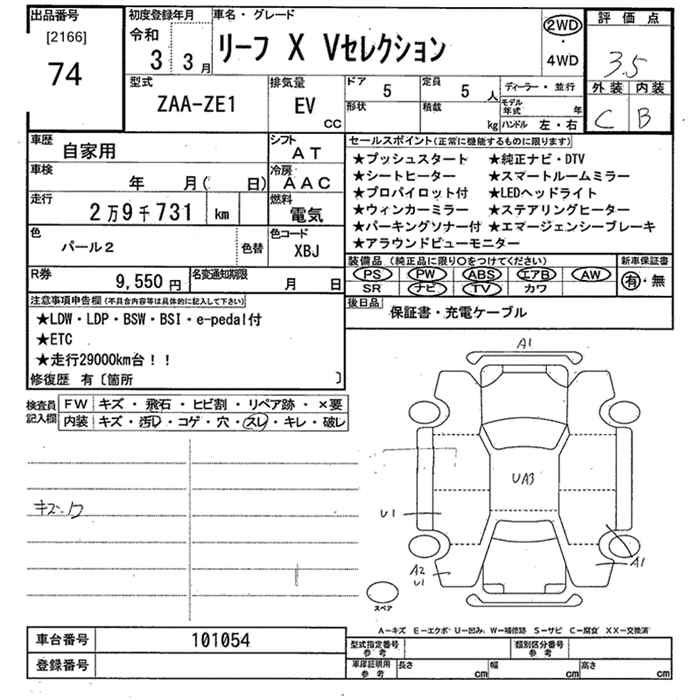 出品番号
[2166]
74
初度登録年月
令和
3 3月
車名・グレード
リーフ X Vセレクション
2WD
・
4WD
評価点
3.5
外装 内装
C B
型式
ZAA-ZE1
排気量
EV
CC
ドア 5
形状
定員 5 人
積載 kg
ディーラー・並行
モデル年式 年
ハンドル 左・右
車歴
自家用
シフト
AT
車検
年 月( 日)
冷房
AAC
走行
2万9千731 km
燃料
電気
色
パール2
色替
色コード
XBJ
R券
9,550円
名変通知期限
月 日
セールスポイント(正常に機能するものに限ります)
★プッシュスタート ★純正ナビ・DTV
★シートヒーター ★スマートルームミラー
★プロパイロット付 ★LEDヘッドライト
★ウィンカーミラー ★ステアリングヒーター
★パーキングソナー付 ★エマージェンシーブレーキ
★アラウンドビューモニター
装備品(純正品に限り○をつけてください)
PS PW ABS エアB AW
SR ナビ TV カワ
新車保証書
有・無
後日品
保証書・充電ケーブル
注意事項申告欄(不具合内容等は具体的に記入して下さい)
★LDW・LDP・BSW・BSI・e-pedal付
★ETC
★走行29000km台!!
修復歴 有〔箇所 〕
検査員
記入欄
FW キズ・飛石・ヒビ割・リペア跡・×要
内装 キズ・汚レ・コゲ・穴・スレ・キレ・破レ
A1
UA3
U1
A2
U1
A1
スペア
A−キズ E−エクボ U−凹み W−補修跡 S−サビ C−腐食 XX−交換済
車台番号
101054
登録番号
型式指定番号
参考
類別区分番号
参考
車庫証明用
参考
長さ cm
幅 cm
高さ cm